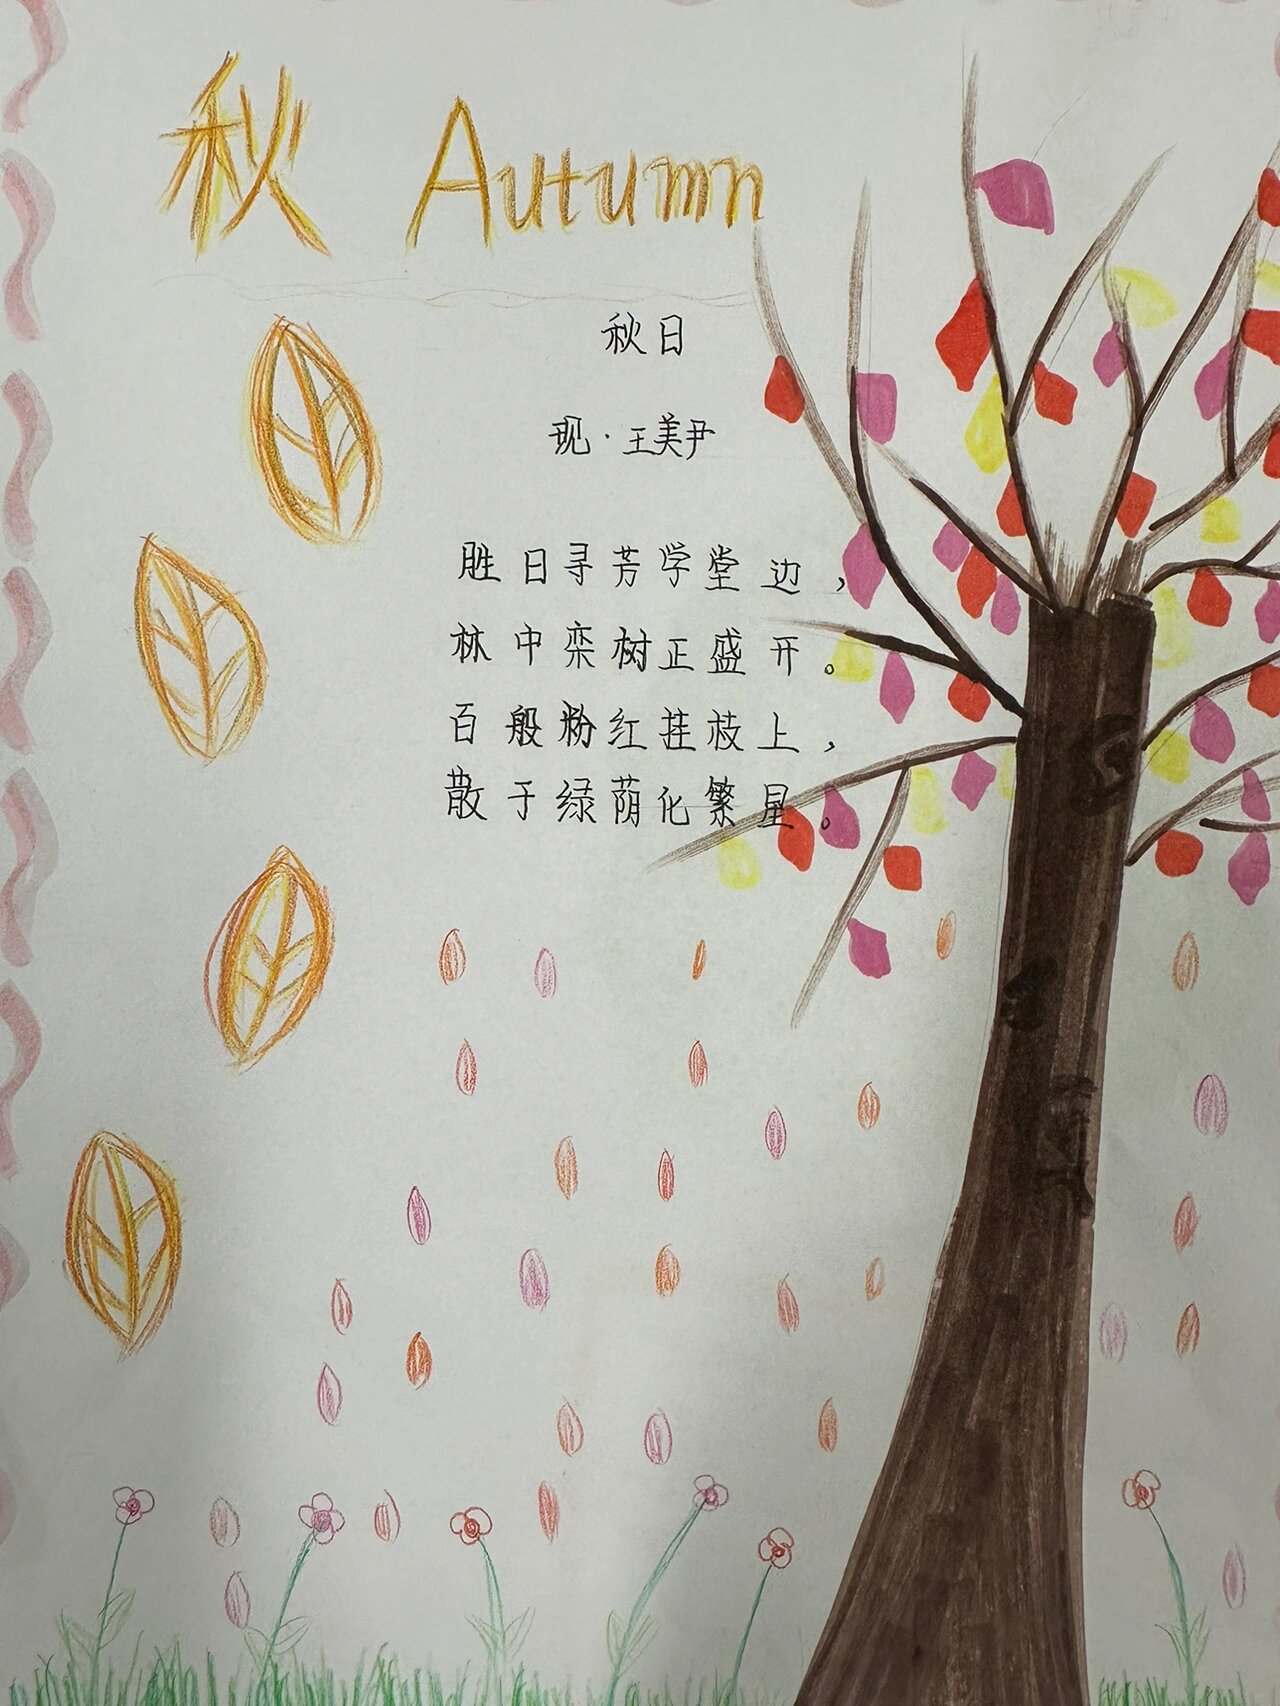 秋 Autumn
秋日
现·王美尹
胜日寻芳学堂边，
林中栾树正盛开。
百般粉红挂枝上，
散于绿荫化繁星。